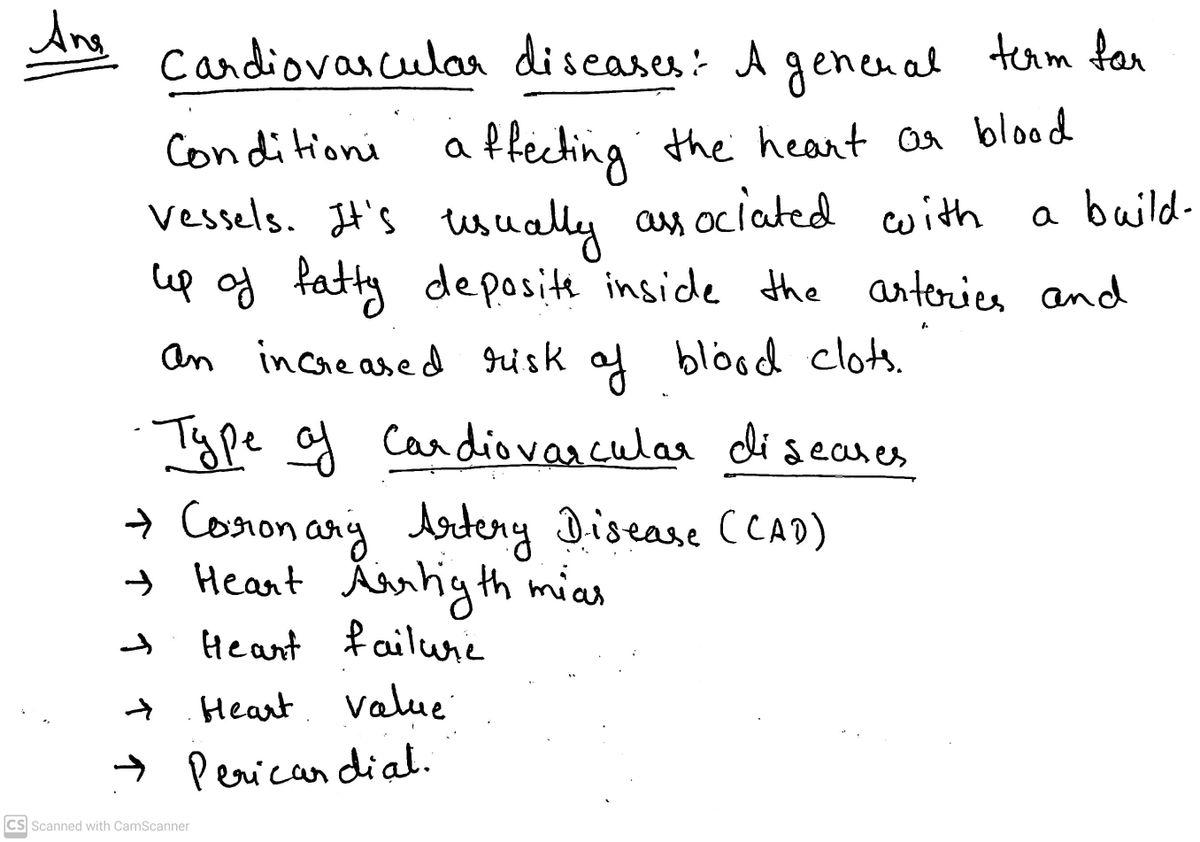 Ans
Cardiovascular diseases:- A general term for
Conditions affecting the heart or blood
vessels. It's usually associated with a build-
up of fatty deposits inside the arteries and
an increased risk of blood clots.
Type of Cardiovascular diseases
→ Coronary Artery Disease (CAD)
→ Heart Arrhythmias
→ Heart failure
→ Heart value
→ Pericardial.
CS Scanned with CamScanner